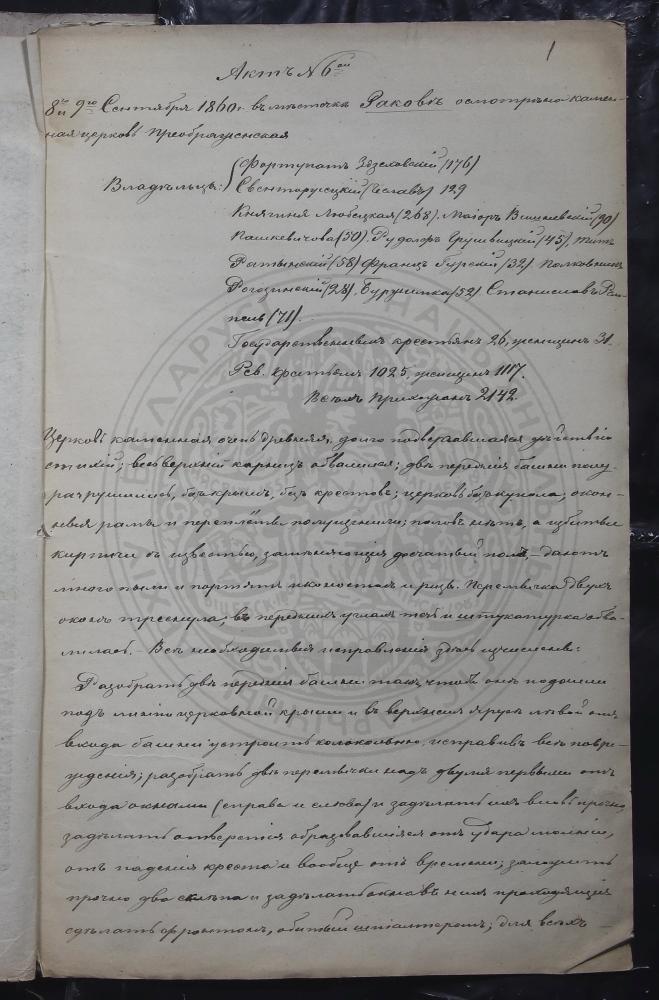 1
Актъ №6ой
8го и 9го Сентября 1860г. въ мѣстечкѣ Раковѣ осмотрѣна камен-
ная церковь Преображенская
Владѣльцы: Фортунатъ Здзеховскій (176)
Свенторжецкій (Чеславъ) 129
Княгиня Любецкая (268), Маіоръ Вишневскій (90)
Пашкевичова (50), Рудольфъ Грушвицкій (45), Титъ
Ратынскій (58) Францъ Гурскій (32), Полковникъ
Рогозинскій (28), (52) Станиславъ
(71).
Государственныхъ крестьянъ 26, женщинъ 31.
Рев. 1025, женщинъ 1117.
Всѣхъ Прихожанъ 2142
Церковь каменная очень древняя, долго подвергавшаяся дѣйствію
стихій; весь верхній карнизъ обвалился; двѣ переднія башни полу-
разрушились, безъ крышъ, безъ крестовъ; церковь безъ купола, окон-
ныя рамы и переплеты полусгнили; половъ нѣтъ, а избитые
кирпичи съ известью, замѣняющіе досчатый полъ, – даютъ
много пыли и портятъ иконостасъ и ризы. Перемычка двухъ
оконъ треснула, въ переднихъ углахъ течь и штукатурка обва-
лилась. – Всѣ необходимыя исправленія здѣсь исчислены:
Разобрать двѣ переднія башни такъ, чтобы онѣ подошли
подъ линію церковной крыши и въ верхнемъ ярусѣ лѣвой отъ
входа башни устроить колокольню, исправивъ всѣ повре-
жденія; разобрать двѣ перемычки надъ двумя первыми отъ
входа окнами (справа и слѣва) и задѣлать ихъ вновь прочно,
задѣлать отверстія образовавшіяся отъ удара молніи,
отъ паденія креста и вообще отъ времени; заложить
прочно два склепа и задѣлать окна въ нихъ проходящія
сдѣлать фронтонъ, обитый шалтеромъ; для всѣхъ